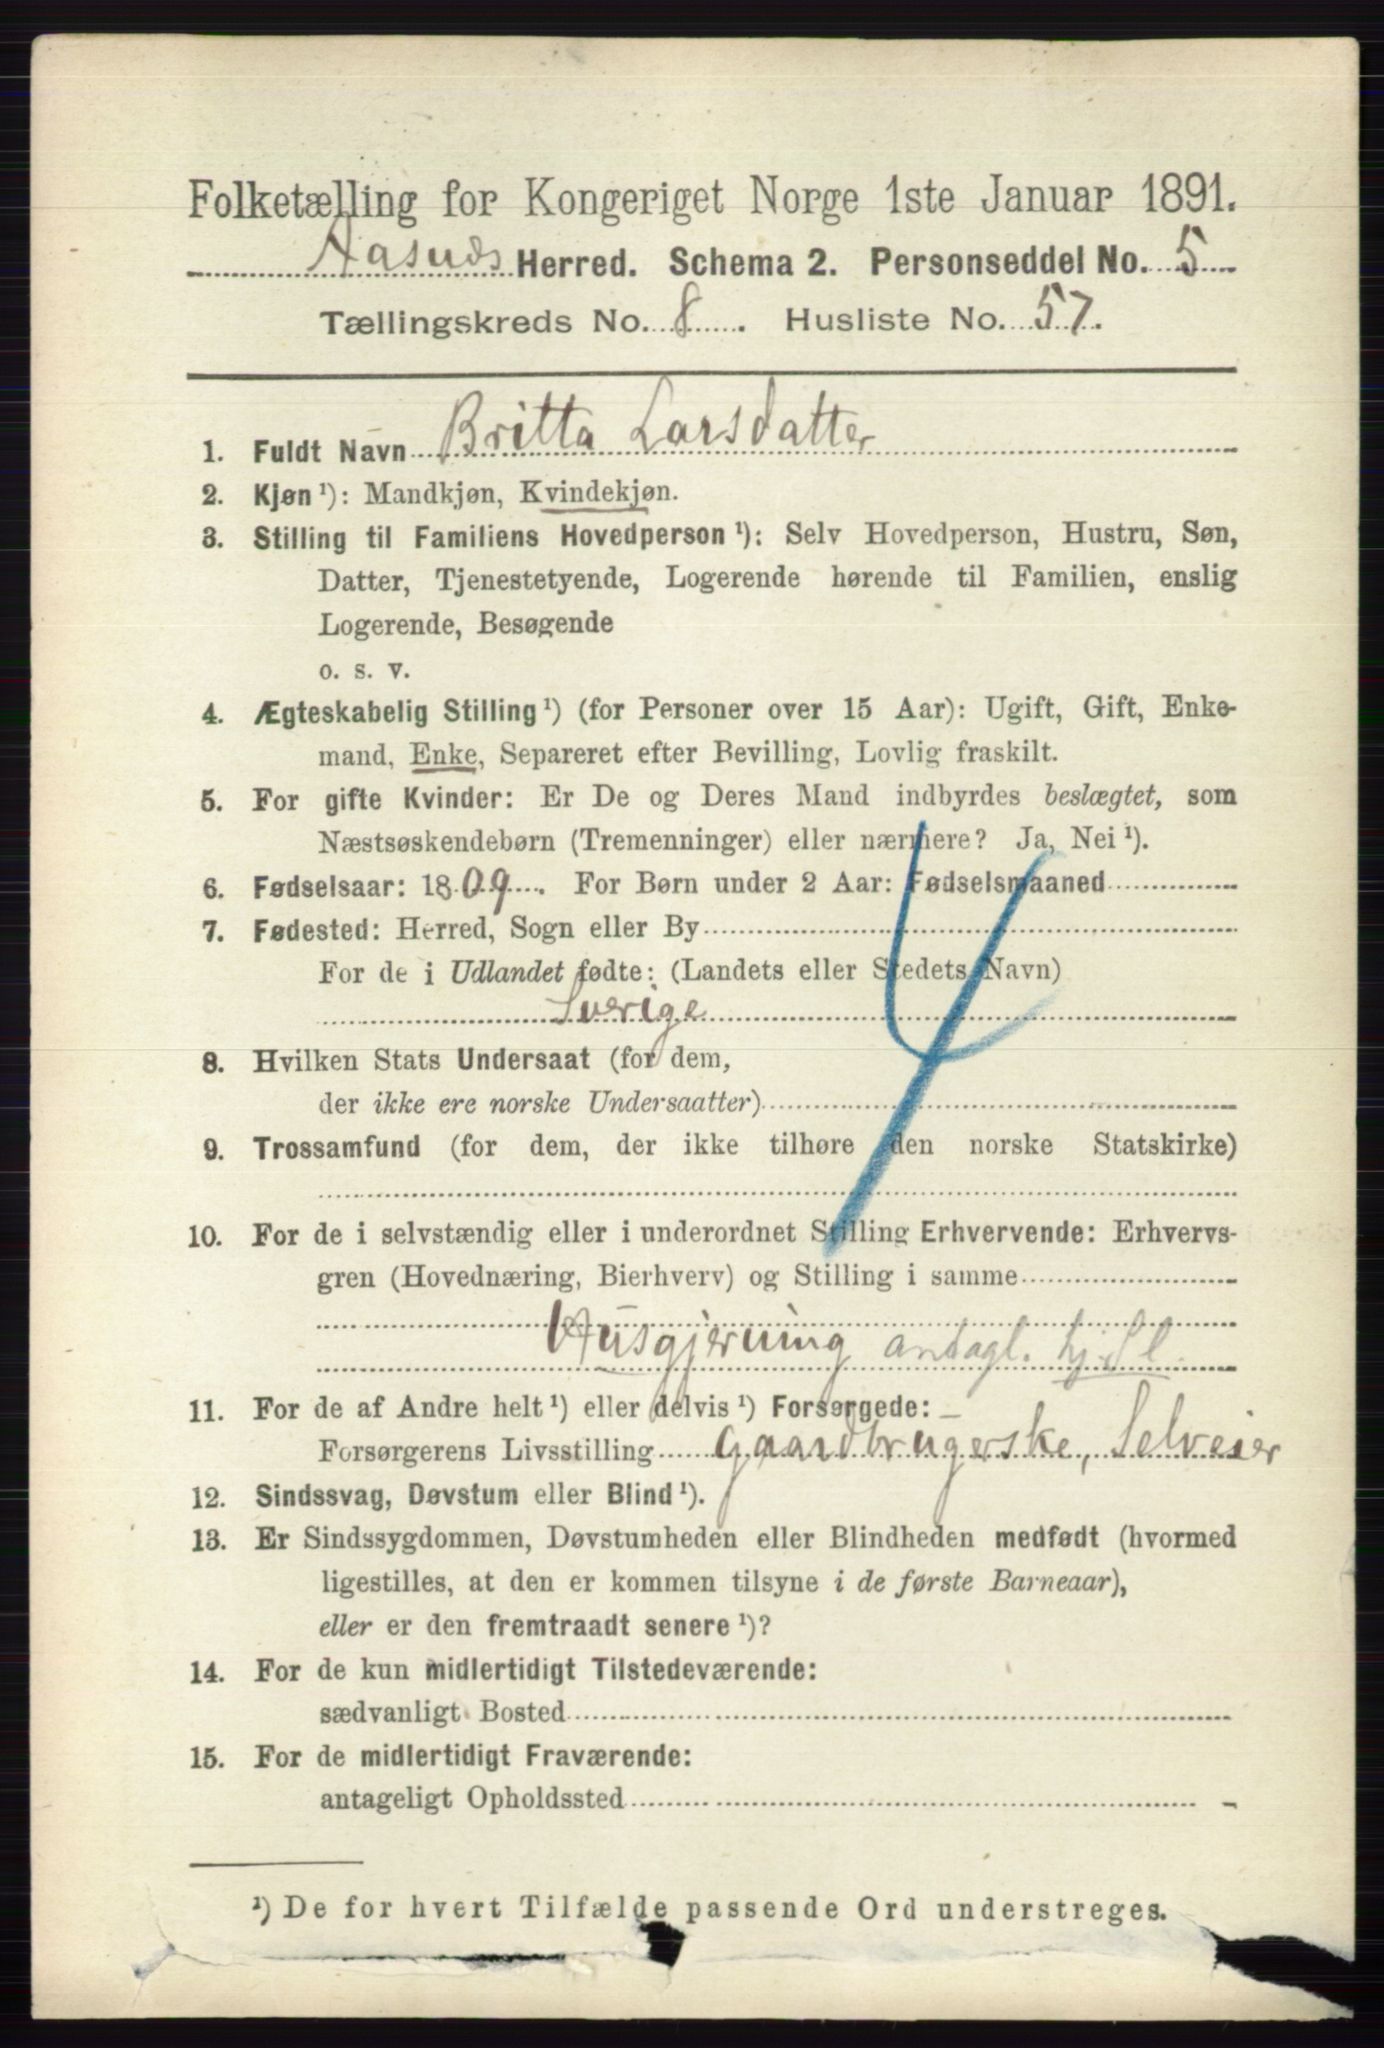 Folketælling for Kongeriget Norge 1ste Januar 1891.
Aasnæs Herred. Schema 2. Personseddel No. 5
Tællingskreds No. 8. Husliste No. 57.
1. Fuldt Navn Britta Larsdatter
2. Kjøn ¹): Mandkjøn, Kvindekjøn.
3. Stilling til Familiens Hovedperson ¹): Selv Hovedperson, Hustru, Søn,
Datter, Tjenestetyende, Logerende hørende til Familien, enslig
Logerende, Besøgende
o. s. v.
4. Ægteskabelig Stilling ¹) (for Personer over 15 Aar): Ugift, Gift, Enke-
mand, Enke, Separeret efter Bevilling, Lovlig fraskilt.
5. For gifte Kvinder: Er De og Deres Mand indbyrdes beslægtet, som
Næstsøskendebørn (Tremenninger) eller nærmere? Ja, Nei ¹).
6. Fødselsaar: 1809. For Børn under 2 Aar: Fødselsmaaned
7. Fødested: Herred, Sogn eller By
For de i Udlandet fødte: (Landets eller Stedets Navn)
Sverige
8. Hvilken Stats Undersaat (for dem,
der ikke ere norske Undersaatter)
9. Trossamfund (for dem, der ikke tilhøre den norske Statskirke)
10. For de i selvstændig eller i underordnet Stilling Erhvervende: Erhvervs-
gren (Hovednæring, Bierhverv) og Stilling i samme
Husgjerning antagl. hj. Sl.
11. For de af Andre helt ¹) eller delvis ¹) Forsørgede: —
Forsørgerens Livsstilling Gaardbrugerske, Selveier
12. Sindssvag, Døvstum eller Blind ¹).
13. Er Sindssygdommen, Døvstumheden eller Blindheden medfødt (hvormed
ligestilles, at den er kommen tilsyne i de første Barneaar),
eller er den fremtraadt senere ¹)?
14. For de kun midlertidigt Tilstedeværende:
sædvanligt Bosted
15. For de midlertidigt Fraværende:
antageligt Opholdssted
¹) De for hvert Tilfælde passende Ord understreges.